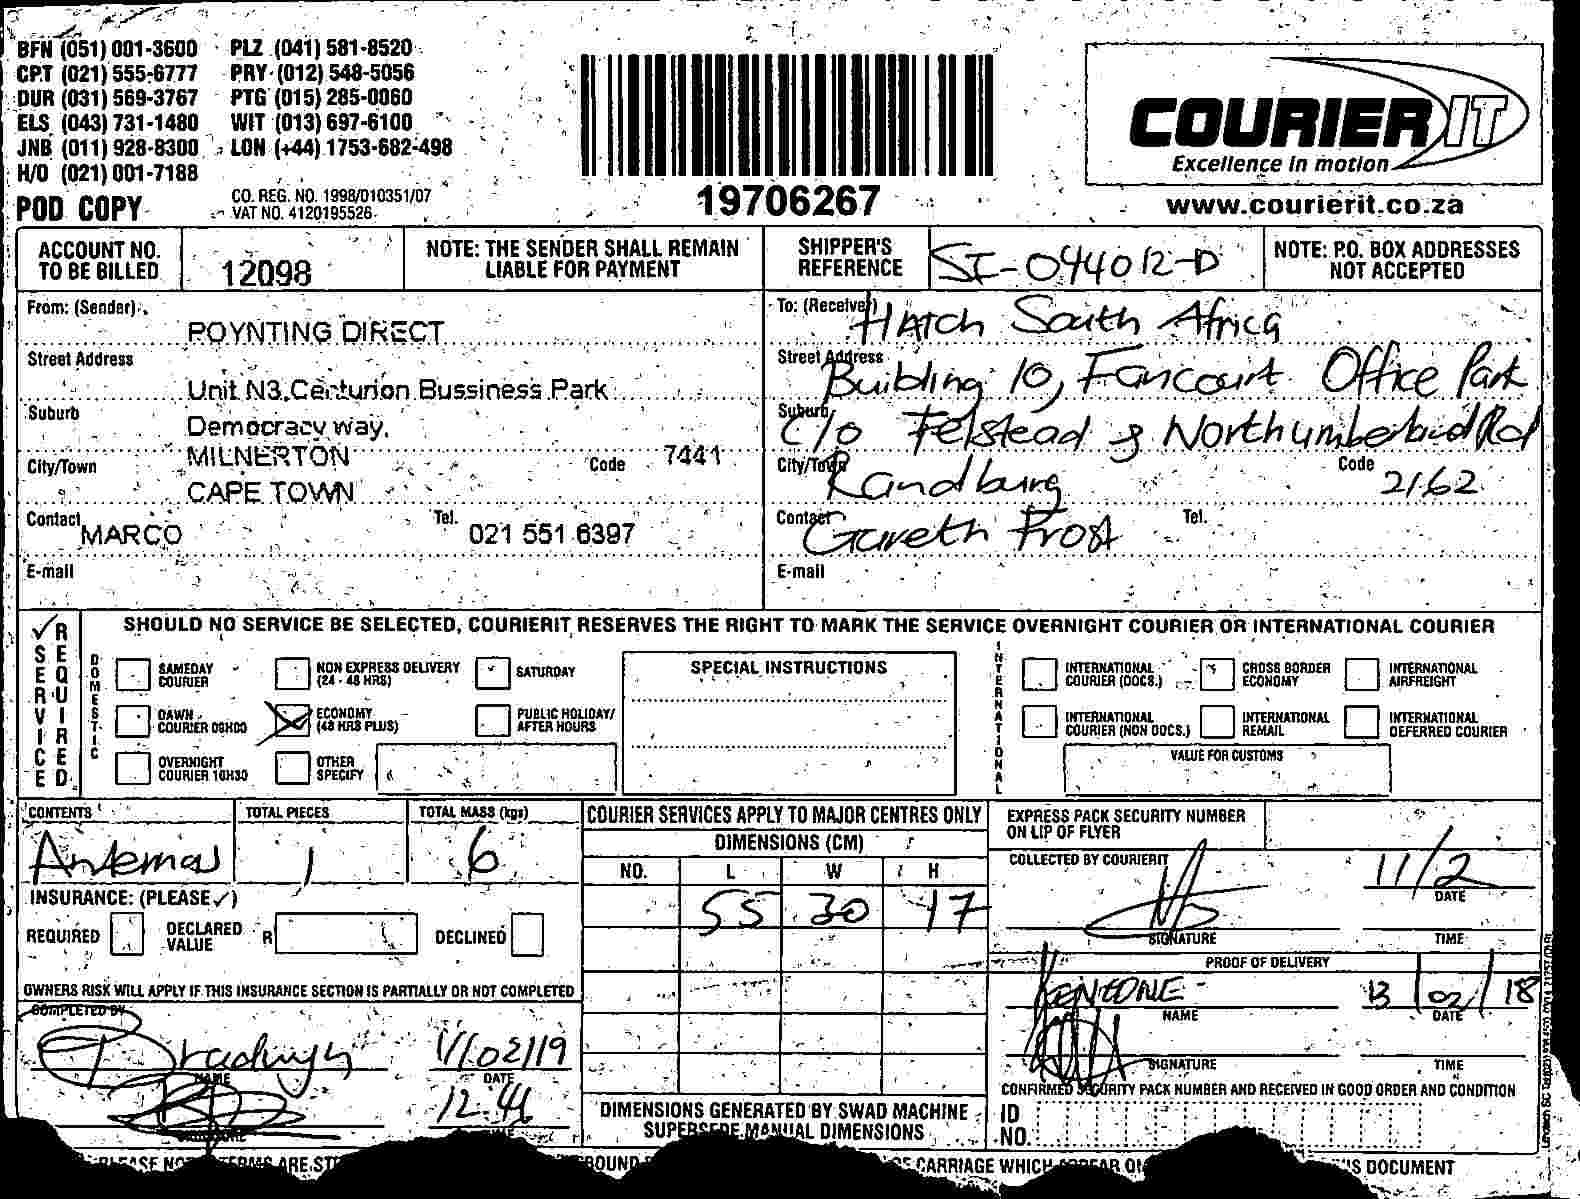 BFN (051) 001-3600 PLZ (041) 581-8520
CPT (021) 555-6777 PRY (012) 548-5056
DUR (031) 569-3767 PTG (015) 285-0060
ELS (043) 731-1480 WIT (013) 697-6100
JNB (011) 928-8300 LON (+44) 1753-682-498
H/O (021) 001-7188
POD COPY
CO. REG. NO. 1998/010351/07
VAT NO. 4120195526
19706267
COURIER IT
Excellence in motion
www.courierit.co.za
ACCOUNT NO. TO BE BILLED 12098
NOTE: THE SENDER SHALL REMAIN LIABLE FOR PAYMENT
SHIPPER'S REFERENCE SI-044012-D
NOTE: P.O. BOX ADDRESSES NOT ACCEPTED
From: (Sender)
POYNTING DIRECT
Street Address
Unit N3,Centurion Bussiness Park
Suburb
Democracy way,
City/Town MILNERTON Code 7441
CAPE TOWN
Contact MARCO Tel. 021 551 6397
E-mail
To: (Receiver) Hatch South Africa
Street Address Buibling 10, Fancourt Office Park
Suburb c/o Felstead & Northumberland Rd
City/Town Randburg Code 2162
Contact Gareth Frost Tel.
E-mail
✓ SERVICE REQUIRED
SHOULD NO SERVICE BE SELECTED, COURIERIT RESERVES THE RIGHT TO MARK THE SERVICE OVERNIGHT COURIER OR INTERNATIONAL COURIER
DOMESTIC
SAMEDAY COURIER
NON EXPRESS DELIVERY (24 - 48 HRS)
SATURDAY
DAWN COURIER 08H00
ECONOMY (48 HRS PLUS)
PUBLIC HOLIDAY/ AFTER HOURS
OVERNIGHT COURIER 10H30
OTHER SPECIFY
SPECIAL INSTRUCTIONS
INTERNATIONAL
INTERNATIONAL COURIER (DOCS.)
CROSS BORDER ECONOMY
INTERNATIONAL AIRFREIGHT
INTERNATIONAL COURIER (NON DOCS.)
INTERNATIONAL REMAIL
INTERNATIONAL DEFERRED COURIER
VALUE FOR CUSTOMS
CONTENTS TOTAL PIECES TOTAL MASS (kgs)
Antennas 1 6
INSURANCE: (PLEASE ✓)
REQUIRED DECLARED VALUE R DECLINED
OWNERS RISK WILL APPLY IF THIS INSURANCE SECTION IS PARTIALLY OR NOT COMPLETED
COMPLETED BY
11/02/19
NAME DATE
SIGNATURE TIME
COURIER SERVICES APPLY TO MAJOR CENTRES ONLY
DIMENSIONS (CM)
NO. L W H
55 30 17
DIMENSIONS GENERATED BY SWAD MACHINE
SUPERSEDE MANUAL DIMENSIONS
EXPRESS PACK SECURITY NUMBER ON LIP OF FLYER
COLLECTED BY COURIERIT 11/2
DATE
SIGNATURE TIME
PROOF OF DELIVERY
KENEONE 13/02/18
NAME DATE
SIGNATURE TIME
CONFIRMED SECURITY PACK NUMBER AND RECEIVED IN GOOD ORDER AND CONDITION
ID NO.
CARRIAGE WHICH
DOCUMENT